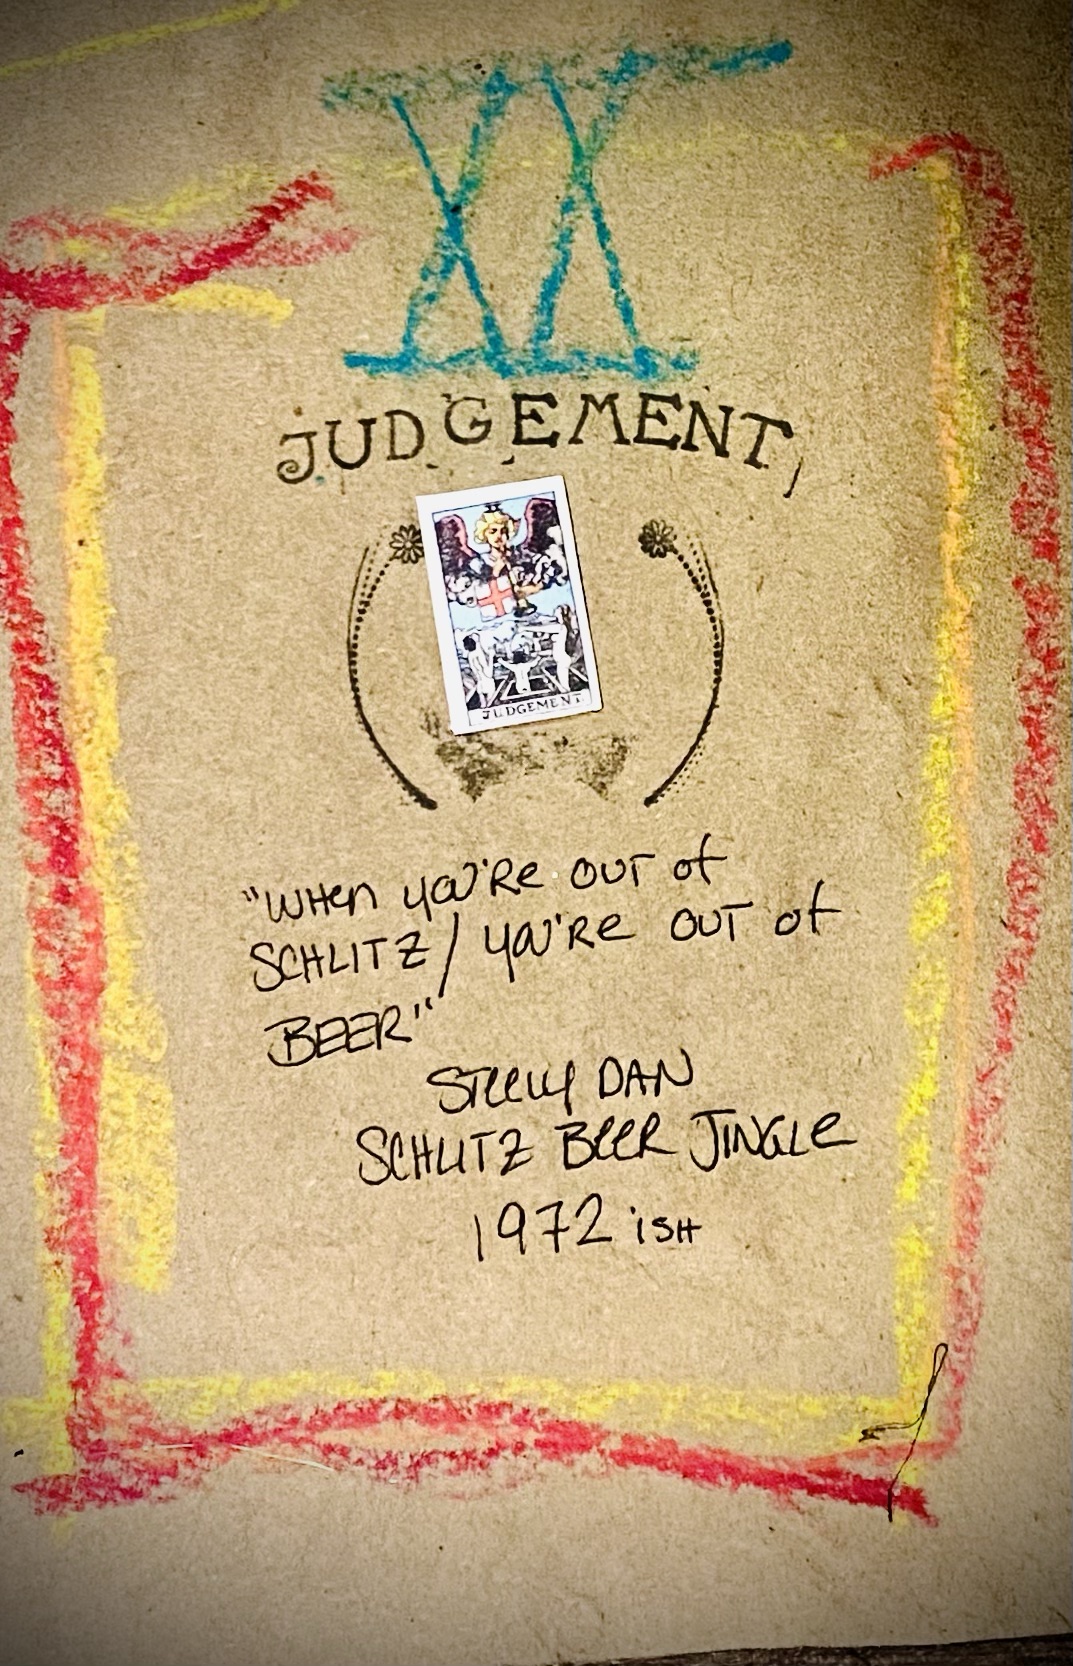 XX
JUDGEMENT
JUDGEMENT.
"WHen you're OUT of
SCHLITZ/ you're OUT of
BEER"
STeely DAN
SCHLITZ BeeR JINGLe
1972 isH